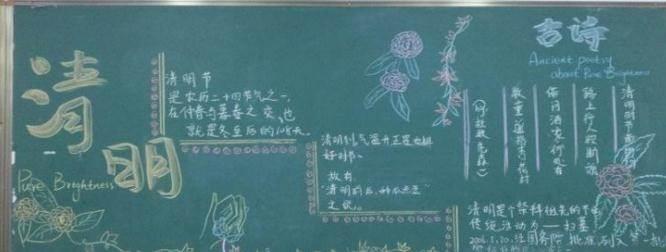 清明
Pure Brightness
清明节
是农历二十四节气之一,
在仲春与暮春之交,也
就是冬至后的108天。
清明到气温升正是也耕
好时节、
故有
"清明前后,种瓜点豆"
之说。
古诗
Ancient poetry
about Pure Brightness
清明时节雨
路上行人欲断魂
借问酒家何处有
牧童遥指杏花村
清明是个祭祀祖先的节日
传统活动为一扫墓
2006.5.20.经国务院批准列入